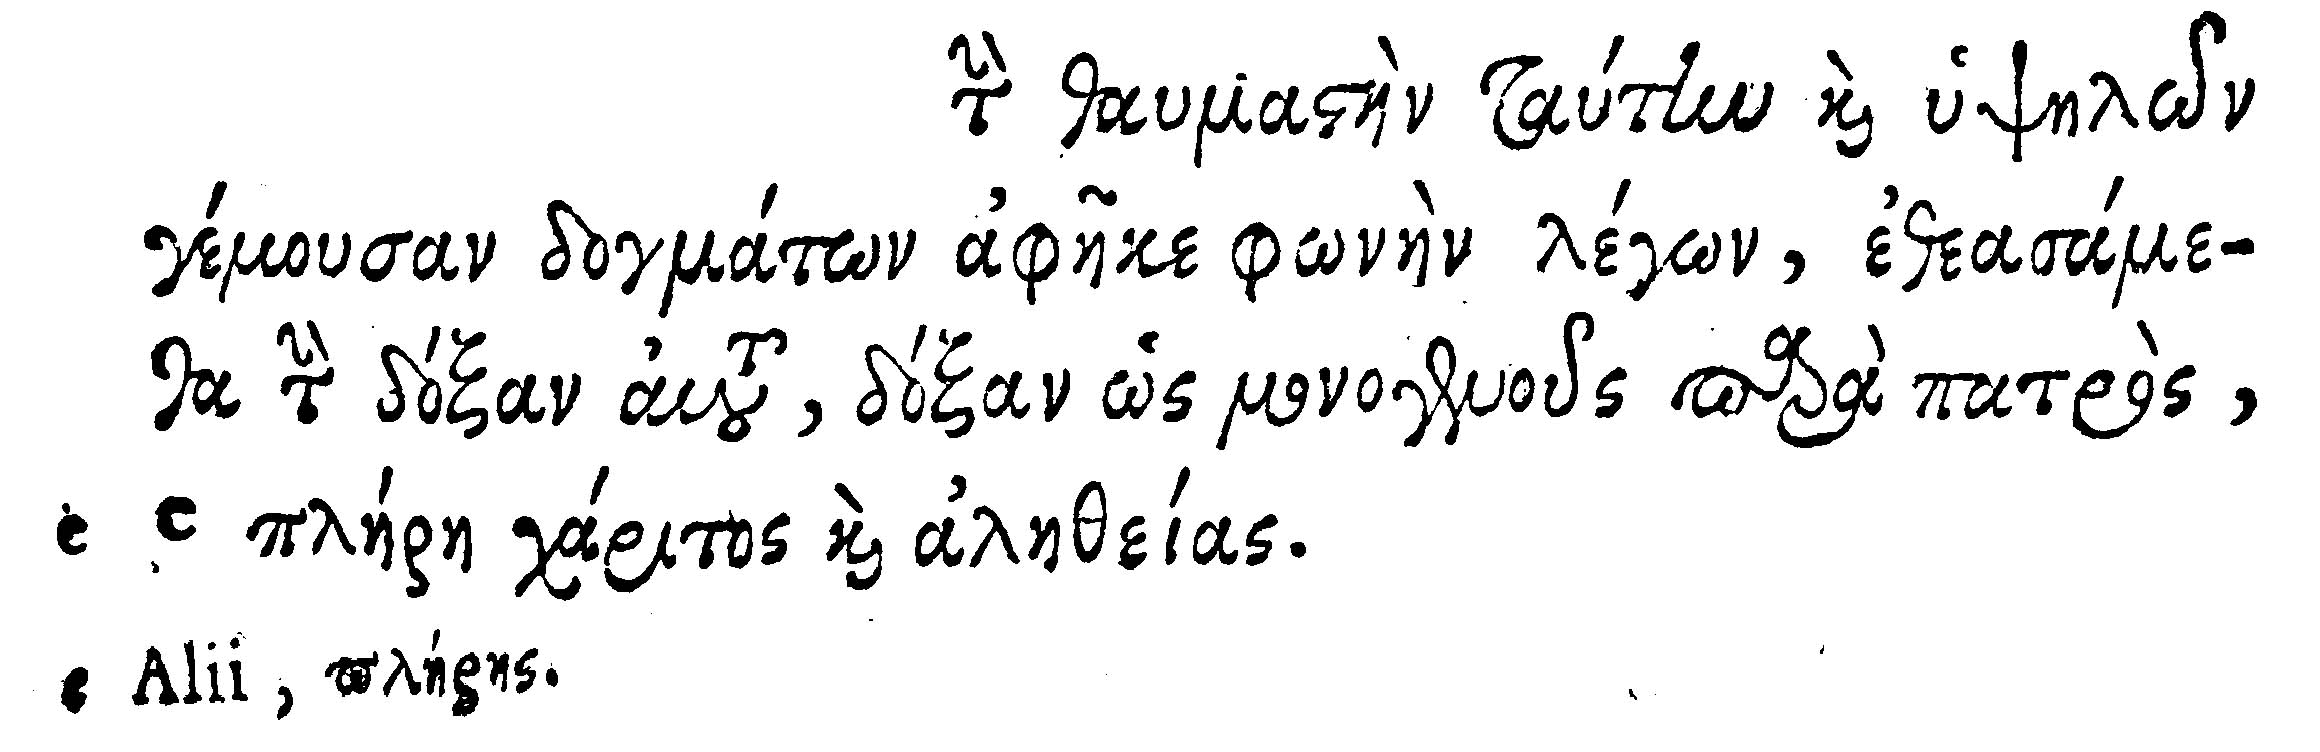 τὴν θαυμαστὴν ταύτην καὶ ὑψηλῶν
γέμουσαν δογμάτων ἀφῆκε φωνὴν λέγων, ἐθεασάμε-
θα τὴν δόξαν αὐτοῦ, δόξαν ὡς μονογενοῦς παρὰ πατρὸς,
e e πλήρη χάριτος καὶ ἀληθείας.
e Alii, πλήρης.